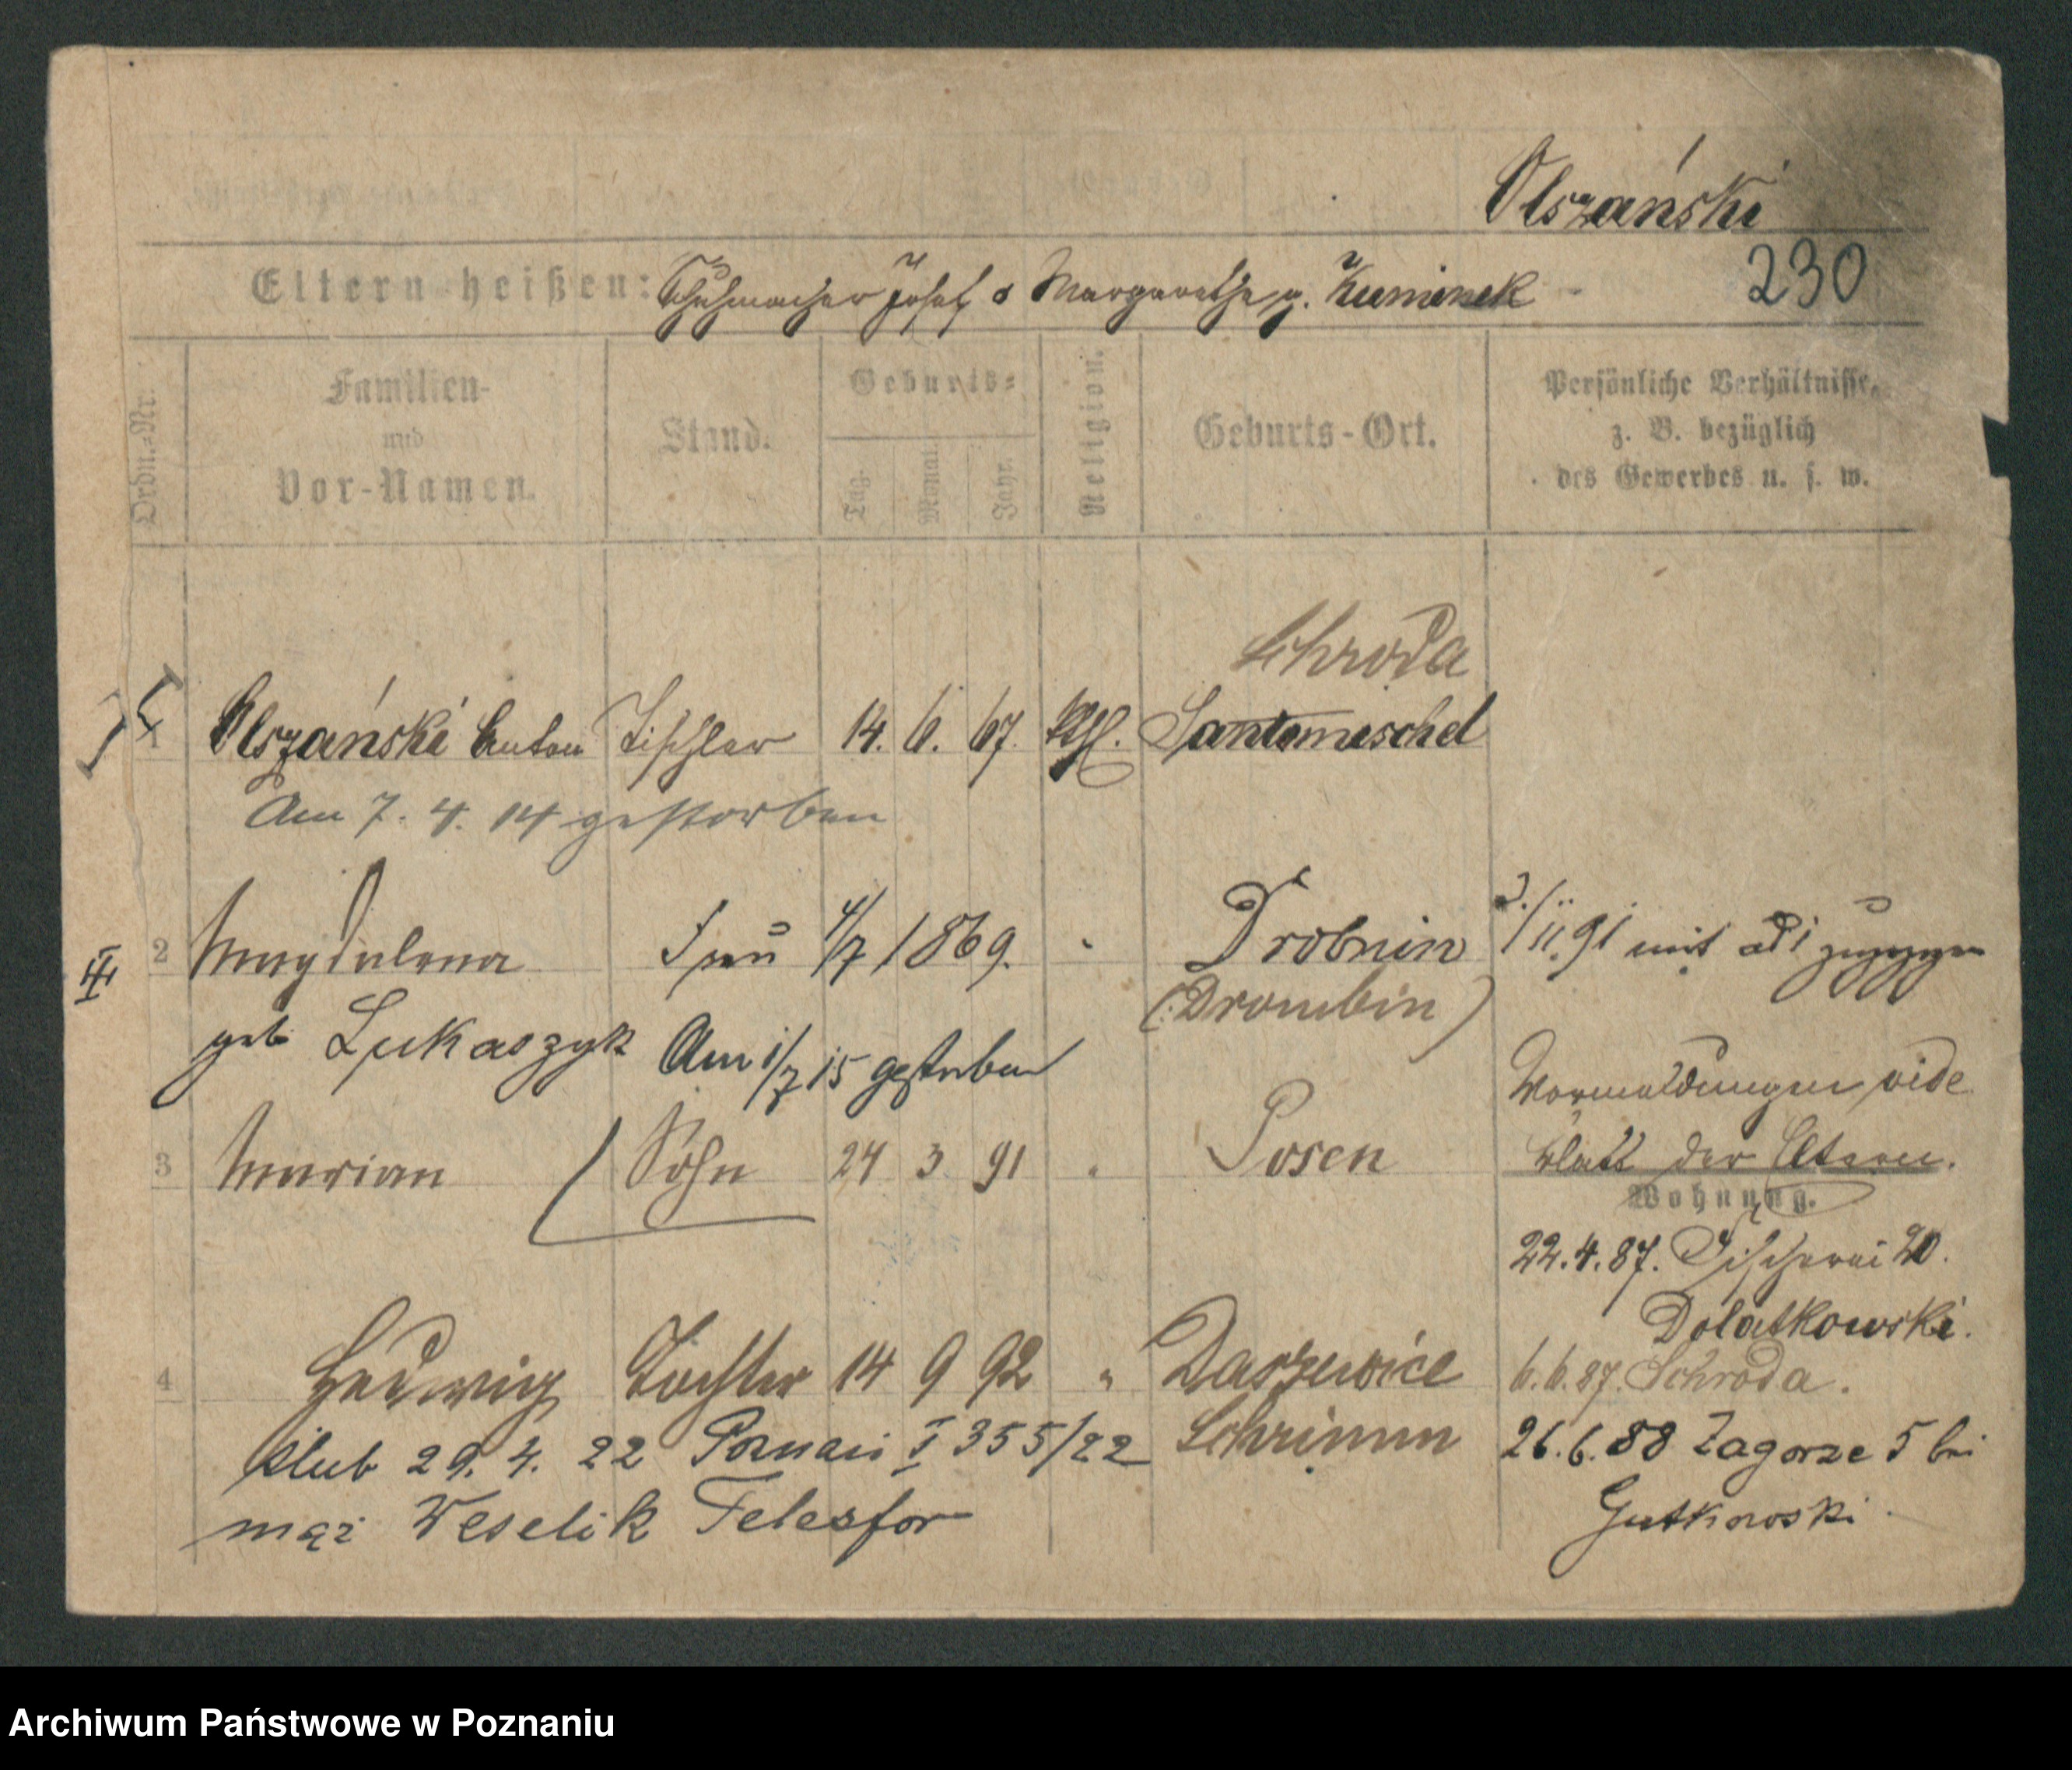 Olszański
230
Eltern heißen: Schuhmacher Josef & Margarethe g. Kuminek
Ordn.-Nr.
Familien-
und
Vor-Namen.
Stand.
Geburts-
Tag. Monat. Jahr.
Religion.
Geburts-Ort.
Persönliche Verhältnisse,
z. B. bezüglich
des Gewerbes u. s. w.
Schroda
1 Olszański Anton Tischler 14. 6. 67. kth. Santomischel
Am 7. 4. 14 gestorben
2 Magdalena Frau 4/7 1869. " Drobnin
(Drombin)
geb Lukaszyk Am 1/7 15 gestorben
3 Marian Sohn 24 3 91 " Posen
4 Hedwig Tochter 14 9 92 " Daszewice
Schrimm
ślub 29. 4. 22 Poznań I 355/22
mąż Weselik Telesfor
3./11.91 mit ad 1 zugezogen
Vormeldungen vide
Blatt der Eltern.
Wohnung.
22.4.87. Fischerei 20.
Dolatkowski.
6.6.87. Schroda.
26.6.88 Zagorze 5 bei
Gutkowski.
Archiwum Państwowe w Poznaniu